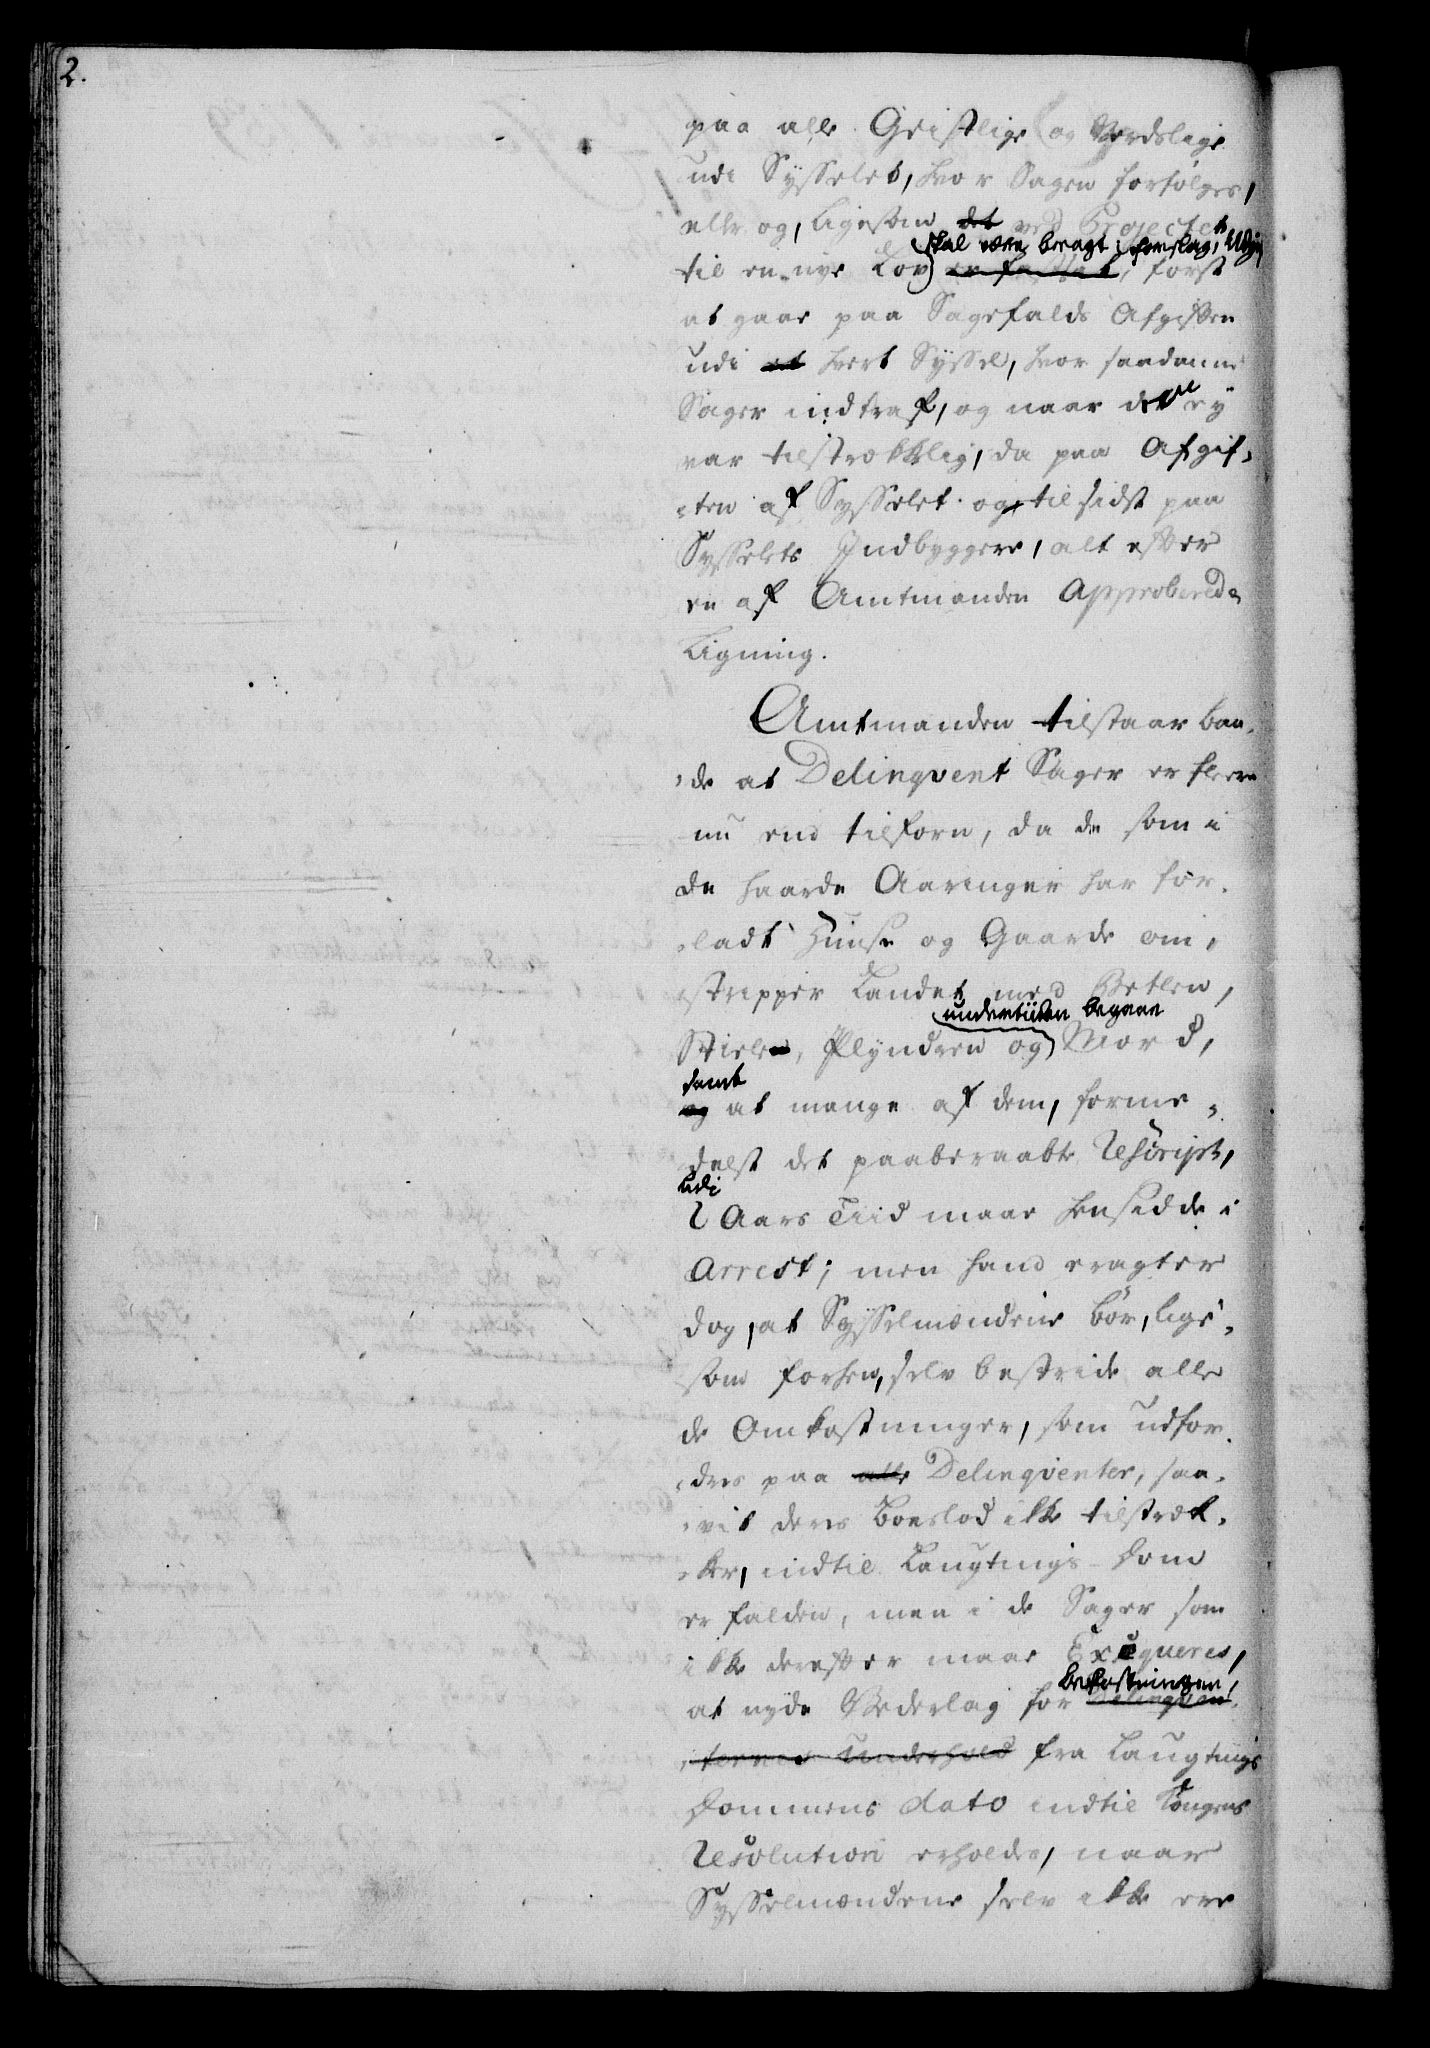 2.
paa alle Geistlige og Verdslige
udi Sysselet, hvor Sagen forfølges,
eller og, ligesom det ved Projectet
skal være bragt i forslag,
til en nye Lov er fastsat, først
at gaae paa Sagefalds Afgiften
udi et hvert Syssel, hvor saadanne
Sager indtraf, og naar den ey
var tilstrækkelig, da paa Afgif-
ten af Sysselet og til sidst paa
Sysselets Indbyggere, alt efter
en af Amtmanden Approberede
Ligning.
Amtmanden tilstaar baa-
de at Delinqvent Sager er fleere
nu end tilforn, da de som i
de haarde Aaringer har for-
ladt Huuse og Gaarde om-
stripper Landet med Betlen,
undertiiden begaae
Stielen, Plyndren og Mord,
samt
og at mange af dem, forme-
delst det paaberaabte Rescript,
udi
2 Aars Tiid maae hensidde i
Arrest; men hand eragter
dog, at Sysselmændene bør, lige-
som forhen, selv bestride alle
de Omkostninger, som udfor-
dres paa alle Delinqventer, saa-
vit deres Boeslod ikke tilstræk-
ker, indtil Laugtings-Dom
er falden, men i de Sager som
ikke derefter maae Exeqveres,
bekostninger,
at nyde Vederlag for Delinqven-
ternes Underhold fra Laugtings
Dommens dato indtil Kongens
Resolution erholdes, naar
Sysselmændene selv ikke ere